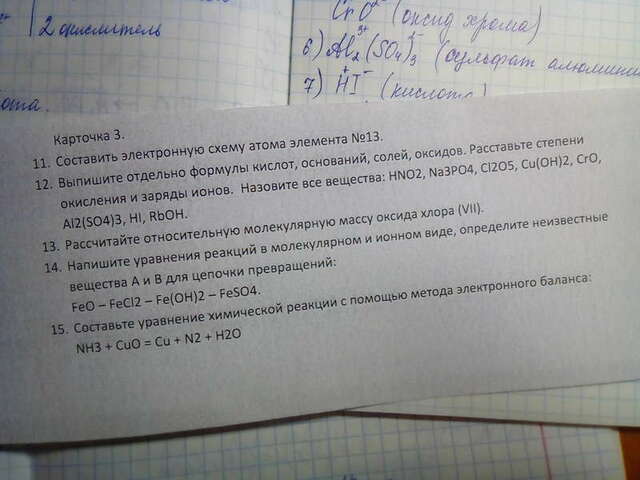 2 окислитель
CrO (оксид хрома)
6) Al2(SO4)3 (сульфат алюмини
7) HI (кислота)
ота.
Карточка 3.
11. Составить электронную схему атома элемента №13.
12. Выпишите отдельно формулы кислот, оснований, солей, оксидов. Расставьте степени
окисления и заряды ионов. Назовите все вещества: HNO2, Na3PO4, Cl2O5, Cu(OH)2, CrO,
Al2(SO4)3, HI, RbOH.
13. Рассчитайте относительную молекулярную массу оксида хлора (VII).
14. Напишите уравнения реакций в молекулярном и ионном виде, определите неизвестные
вещества А и В для цепочки превращений:
FeO – FeCl2 – Fe(OH)2 – FeSO4.
15. Составьте уравнение химической реакции с помощью метода электронного баланса:
NH3 + CuO = Cu + N2 + H2O